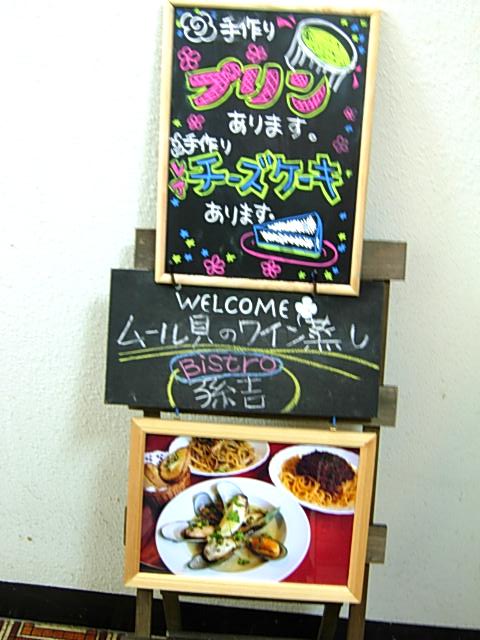 手作り
プリン
あります。
手作り
レア
チーズケーキ
あります。
WELCOME
ムール貝のワイン蒸し
Bistro
孫吉